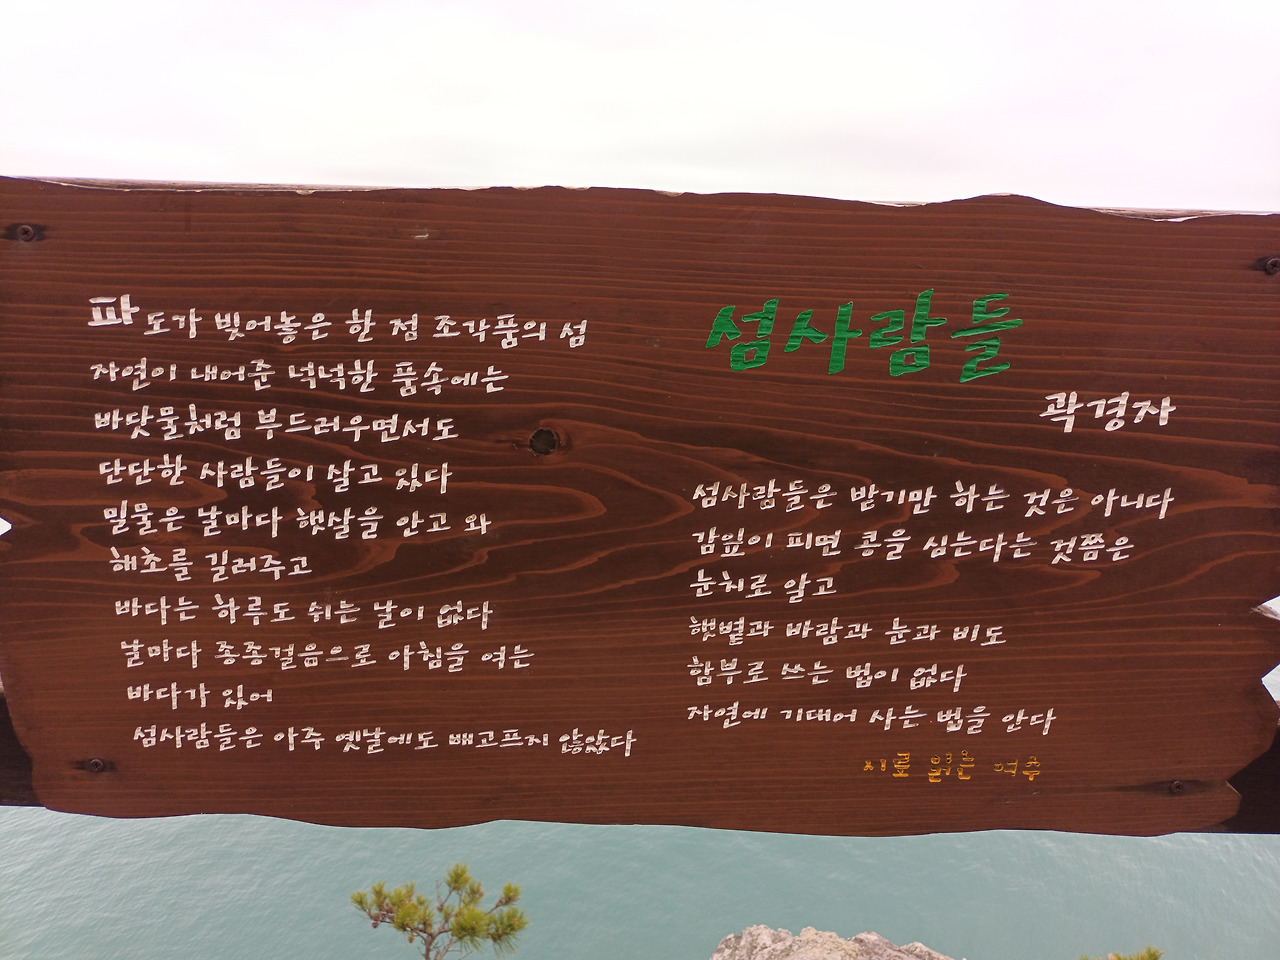 섬사람들
곽경자
파도가 빚어놓은 한 점 조각품의 섬
자연이 내어준 넉넉한 품속에는
바닷물처럼 부드러우면서도
단단한 사람들이 살고 있다
밀물은 날마다 햇살을 안고 와
해초를 길러주고
바다는 하루도 쉬는 날이 없다
날마다 종종걸음으로 아침을 여는
바다가 있어
섬사람들은 아주 옛날에도 배고프지 않았다
섬사람들은 받기만 하는 것은 아니다
감잎이 피면 콩을 심는다는 것쯤은
눈치로 알고
햇볕과 바람과 눈과 비도
함부로 쓰는 법이 없다
자연에 기대어 사는 법을 안다
시로 읽는 여수